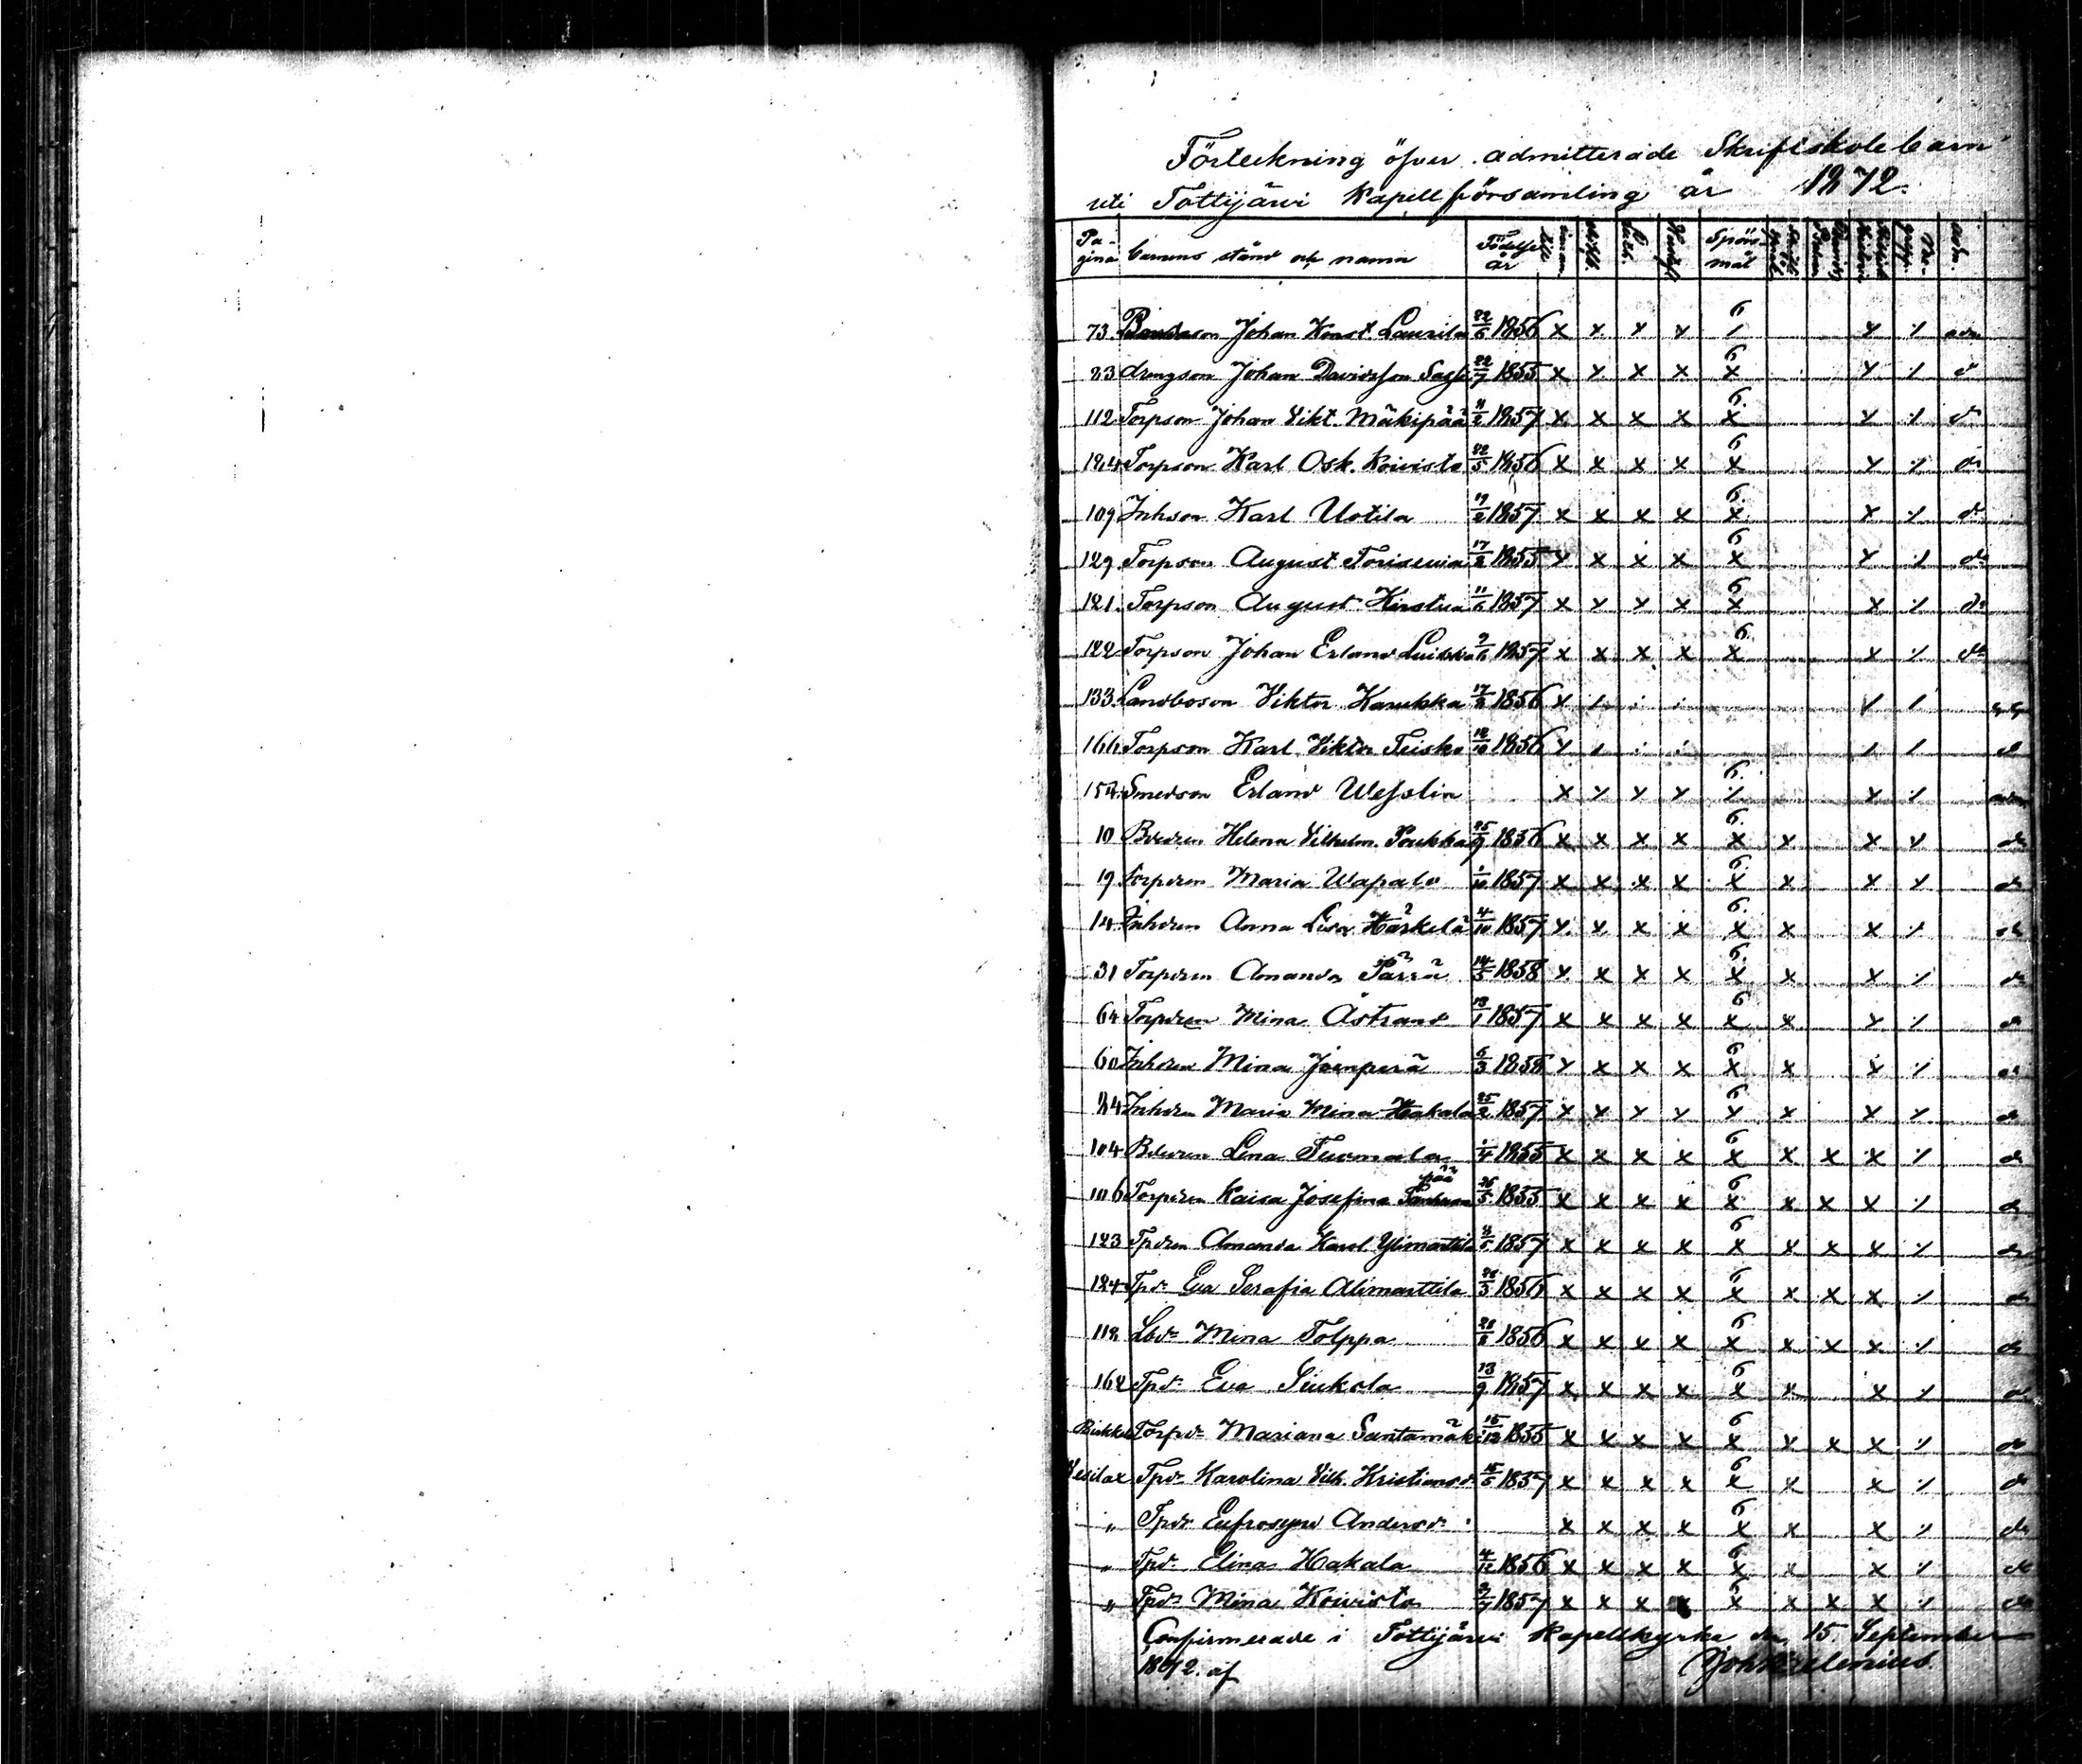 Förteckning öfver admitterade Skriftskolebarn
uti Tottijärvi Kapellförsamling år 1872.
Pagina Barnens stånd och namn Födelse år Spörsmål
73. Bondeson Johan Konst. Laurila 22/6 1856 x x x x 6 x
83 drengson Johan Davidsson 22/7 1855 x x x x 6 x x
112 Torpson Johan Vikt. Mäkipää 11/2 1857 x x x x 6 x x
124 Torpson Karl Osk. Koivisto 22/5 1856 x x x x 6 x x
109 Inhson Karl Uotila 19/2 1857 x x x x 6 x x
129 Torpson August Torisevia 17/8 1855 x x x x 6 x x
121. Torpson August Kirstua 11/6 1857 x x x x 6 x x
122 Torpson Johan Erland 9/6 1857 x x x x 6 x x
133 Landboson Viktor Karukka 17/8 1856 x
166 Torpson Karl Viktor Teisko 18/10 1856 x
154 Smedson Erland Wesslin x x x x 6 x
10 Bdedren Helena Vilhelm. Poukka 25/9 1856 x x x x 6 x x x
19 Torpdren Maria Wapalo 1/10 1857 x x x x 6 x x x
14 Inhdren Anna Lisa Härkelä 4/10 1857 x x x x 6 x x x
31 Torpdren Amanda Pärrä 14/5 1858 x x x x 6 x x x
64 Torpdren Mina Åstrand 13/1 1857 x x x x 6 x x x
60 Inhdren Mina Jämperä 6/3 1858 x x x x 6 x x x
84 Inhdren Maria Mina Hakala 25/2 1857 x x x x 6 x x x
104 Bdedren Lena Tuomala 1/4 1855 x x x x 6 x x x x
106 Torpdren Kaisa Josefina pää 26/5 1855 x x x x 6 x x x x
123 Tpdren Amanda Karol. Ylimarttila 3/5 1857 x x x x 6 x x x x
124 Tpdr Eva Serafia Alimarttila 28/3 1856 x x x x 6 x x x x
118 Lbdr Mina Tolppa 20/8 1856 x x x x 6 x x x x
162 Tpdr Eva Siukola 13/9 1857 x x x x 6 x x x
Birkkala Torpdr Mariana Santamäki 15/12 1855 x x x x 6 x x x x
Vesilax Tpdr Karolina Vilh. Kristiansdr 15/5 1857 x x x x 6 x x x
" Tpdr Eufrosyne Andersdr x x x x 6 x x x
" Tpdr Elina Hakala 4/12 1856 x x x x 6 x x x
" Tpdr Mina Koivisto 3/7 1857 x x x x 6 x x x x
Confirmerade i Tottijärvi Kapellkyrka den 15 September
1872. af